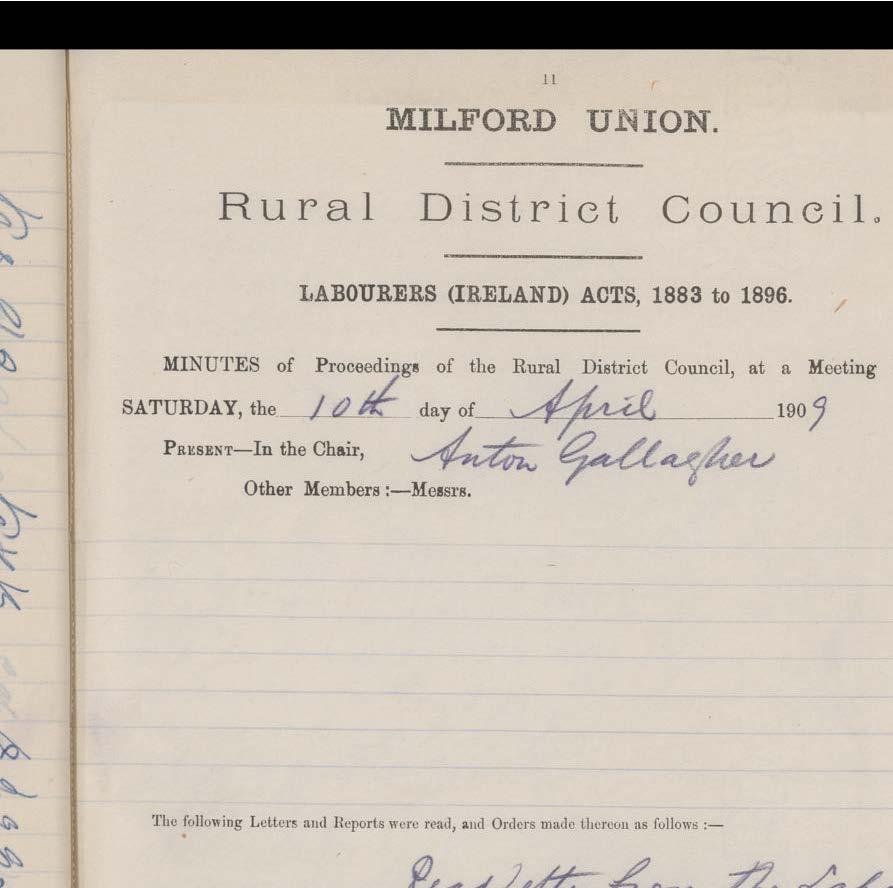 11
MILFORD UNION.
Rural District Council.
LABOURERS (IRELAND) ACTS, 1883 to 1896.
MINUTES of Proceedings of the Rural District Council, at a Meeting
SATURDAY, the 10th day of April 1909
PRESENT—In the Chair, Anton Gallagher
Other Members :—Messrs.
The following Letters and Reports were read, and Orders made thereon as follows :—
from the